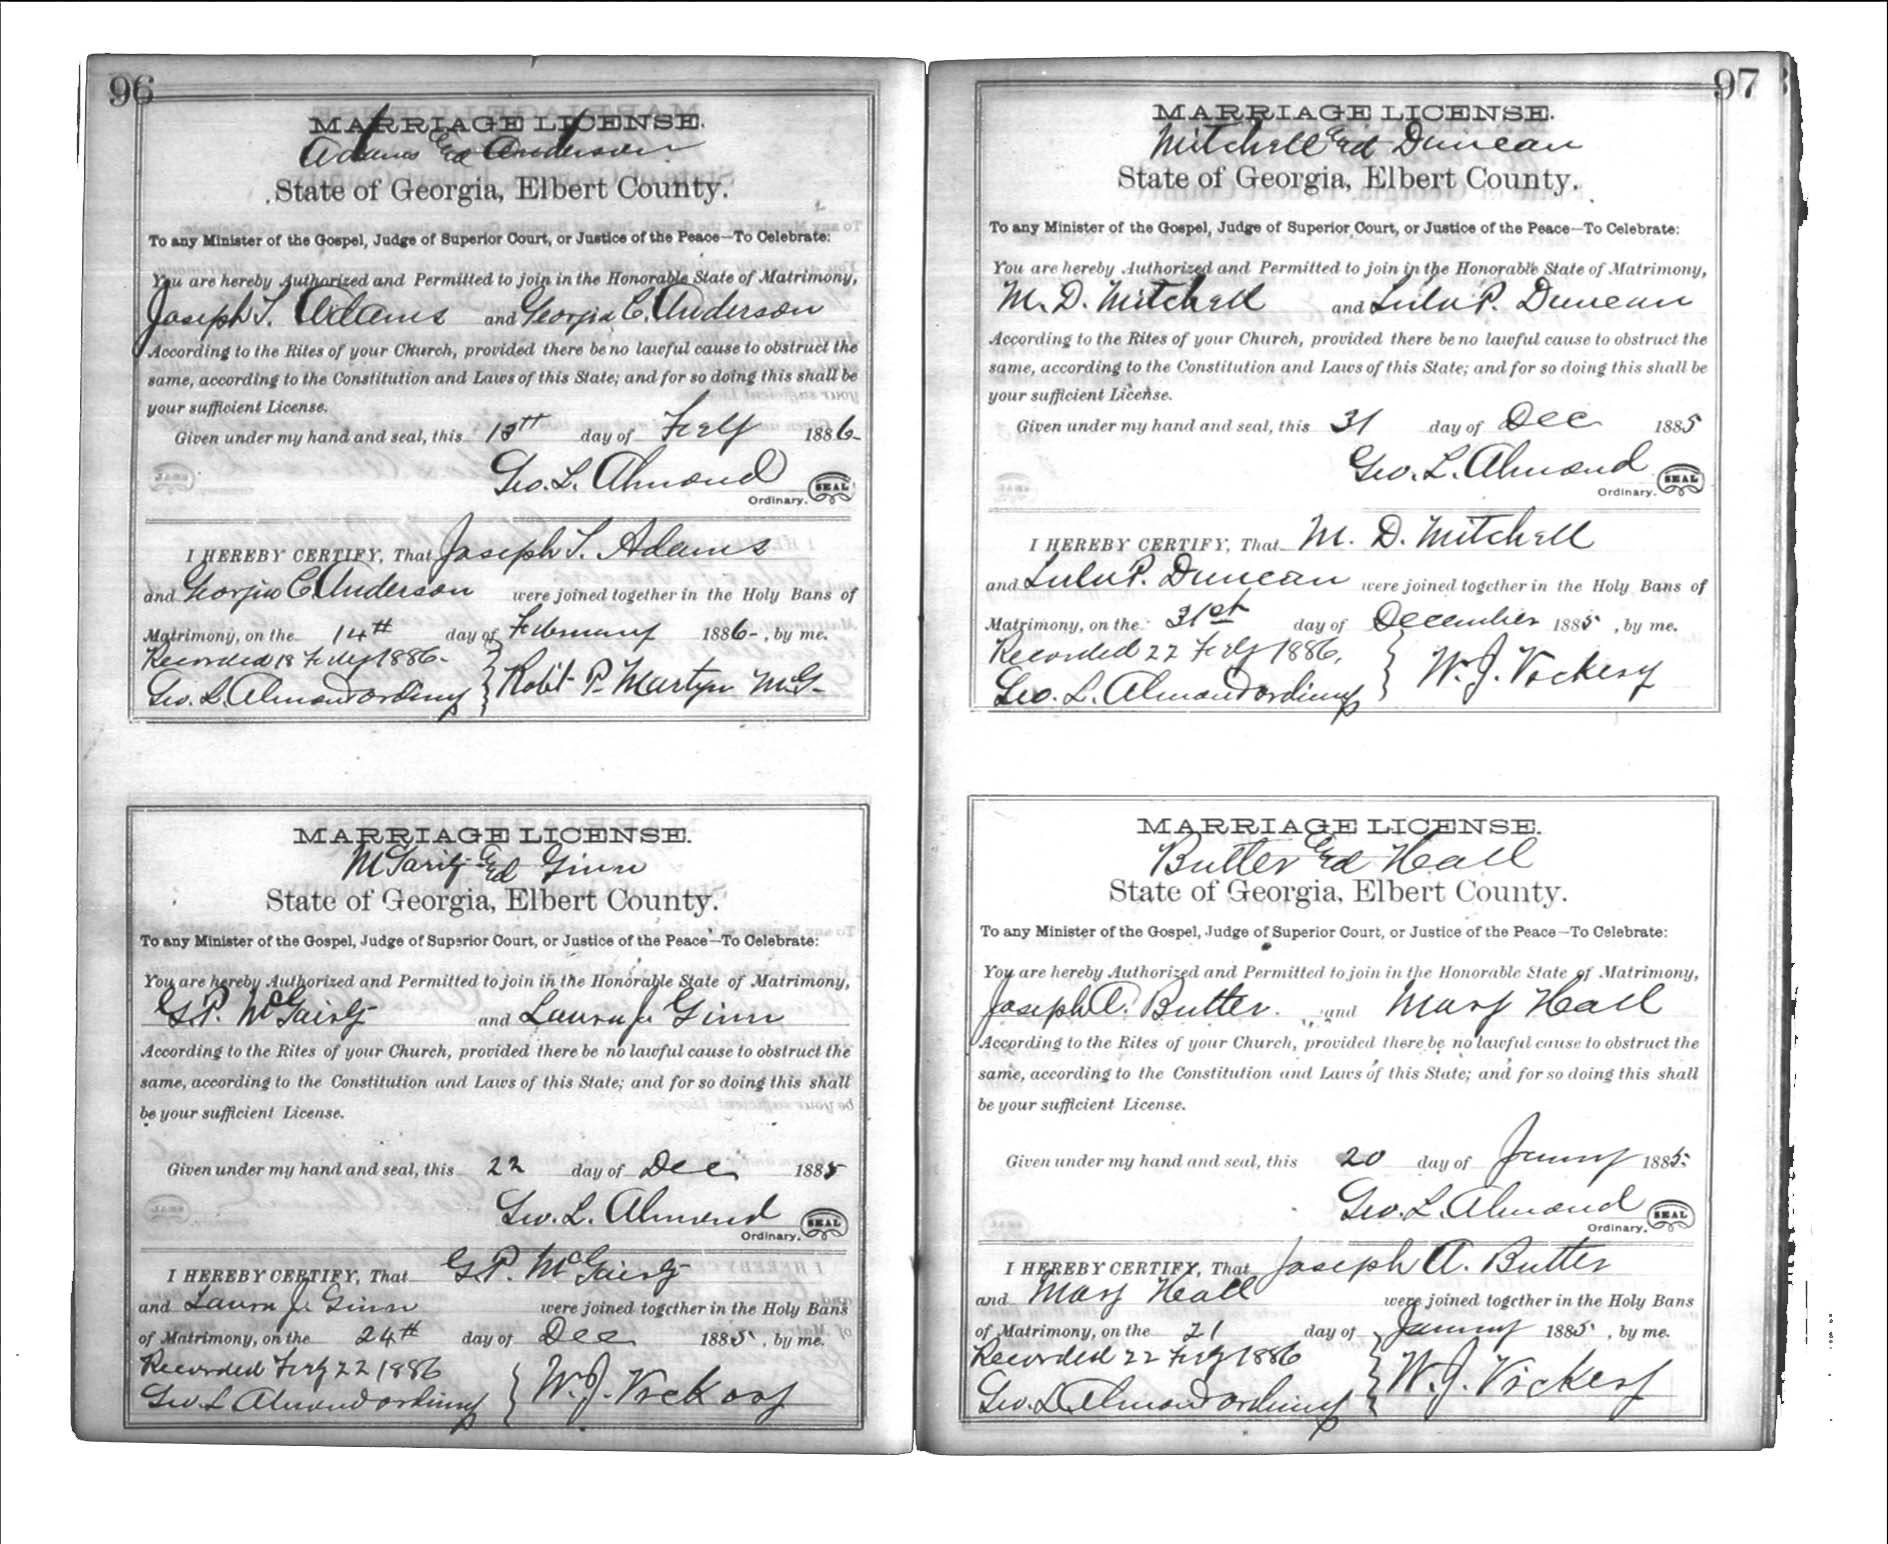 96
MARRIAGE LICENSE.
Adams & Anderson
State of Georgia, Elbert County.
To any Minister of the Gospel, Judge of Superior Court, or Justice of the Peace—To Celebrate:
You are hereby Authorized and Permitted to join in the Honorable State of Matrimony,
Joseph T. Adams and Georgia C. Anderson
According to the Rites of your Church, provided there be no lawful cause to obstruct the
same, according to the Constitution and Laws of this State; and for so doing this shall be
your sufficient License.
Given under my hand and seal, this 13th day of Feby 1886
Geo. L. Almond
SEAL
Ordinary.
I HEREBY CERTIFY, That Joseph T. Adams
and Georgia C. Anderson were joined together in the Holy Bans of
Matrimony, on the 14th day of February 1886-, by me.
Recorded 18 Feby 1886-
Geo. L. Almond ordinary } Robt P. Martyn M.G.
MARRIAGE LICENSE.
Ginn
State of Georgia, Elbert County.
To any Minister of the Gospel, Judge of Superior Court, or Justice of the Peace—To Celebrate:
You are hereby Authorized and Permitted to join in the Honorable State of Matrimony,
G.P. McGairty and Laura J. Ginn
According to the Rites of your Church, provided there be no lawful cause to obstruct the
same, according to the Constitution and Laws of this State; and for so doing this shall
be your sufficient License.
Given under my hand and seal, this 22 day of Dec 1885
Geo. L. Almond
SEAL
Ordinary.
I HEREBY CERTIFY, That G.P. McGairty
and Laura J. Ginn were joined together in the Holy Bans
of Matrimony, on the 24th day of Dec 1885, by me.
Recorded Feby 22 1886
Geo. L Almond ordinary } W. J. Vickory
97
MARRIAGE LICENSE.
Mitchell Duncan
State of Georgia, Elbert County.
To any Minister of the Gospel, Judge of Superior Court, or Justice of the Peace—To Celebrate:
You are hereby Authorized and Permitted to join in the Honorable State of Matrimony,
M. D. Mitchell and Lulu P. Duncan
According to the Rites of your Church, provided there be no lawful cause to obstruct the
same, according to the Constitution and Laws of this State; and for so doing this shall be
your sufficient License.
Given under my hand and seal, this 31 day of Dec 1885
Geo. L. Almond
SEAL
Ordinary.
I HEREBY CERTIFY, That M. D. Mitchell
and Lulu P. Duncan were joined together in the Holy Bans of
Matrimony, on the 31st day of December 1885, by me.
Recorded 22 Feby 1886,
Geo. L. Almond ordinary } W. J. Vickery
MARRIAGE LICENSE.
Butter Hall
State of Georgia, Elbert County.
To any Minister of the Gospel, Judge of Superior Court, or Justice of the Peace—To Celebrate:
You are hereby Authorized and Permitted to join in the Honorable State of Matrimony,
Joseph A. Butter. and Mary Hall
According to the Rites of your Church, provided there be no lawful cause to obstruct the
same, according to the Constitution and Laws of this State; and for so doing this shall
be your sufficient License.
Given under my hand and seal, this 20 day of January 1885
Geo. L. Almond
SEAL
Ordinary.
I HEREBY CERTIFY, That Joseph A. Butter
and Mary Hall were joined together in the Holy Bans
of Matrimony, on the 21 day of January 1885, by me.
Recorded 22 Feby 1886
Geo. L. Almond ordinary } W. J. Vickery